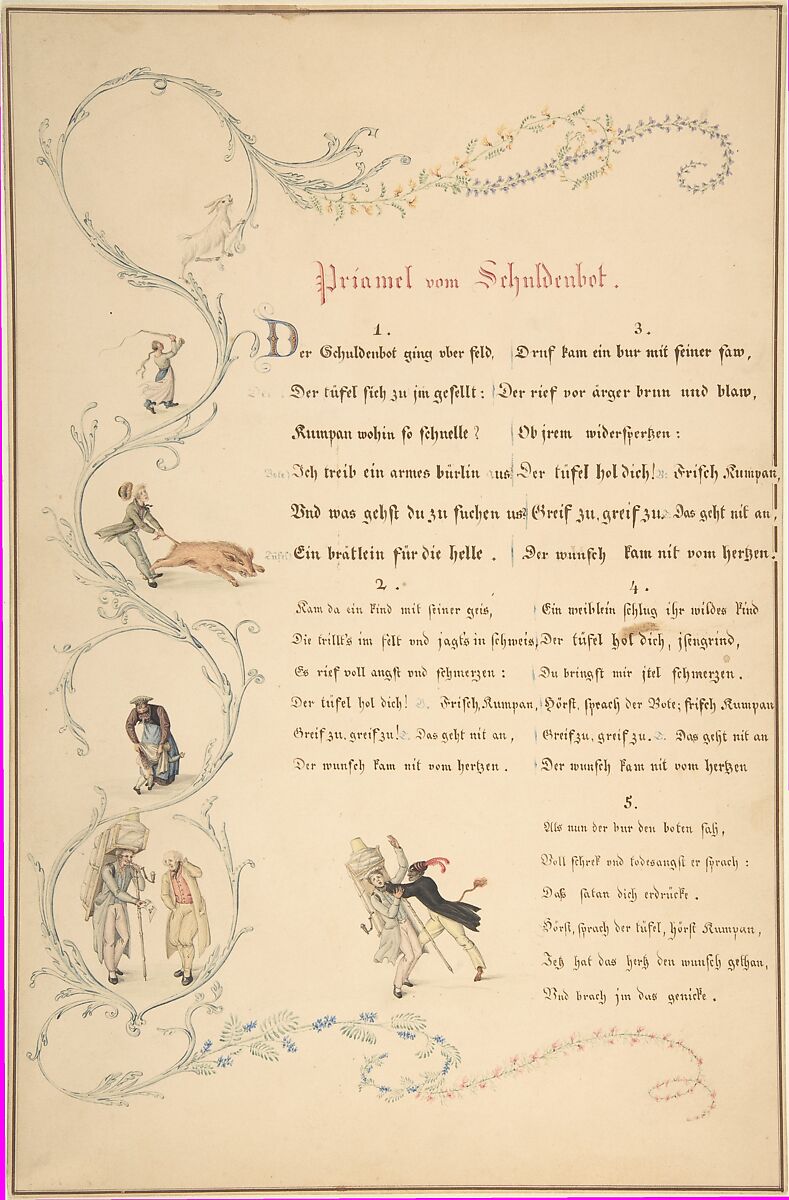 Priamel vom Schuldenbot.
1.
Der Schuldenbot ging vber feld,
Der tüfel sich zu jm gesellt:
Kumpan wohin so schnelle?
Bote) Ich treib ein armes bürlin us
Vnd was gehst du zu suchen us?
Tüfel) Ein brätlein für die helle.
2.
Kam da ein kind mit seiner geis,
Die trillt's im felt vnd jagt's in schweis,
Es rief voll angst vnd schmerzen:
Der tüfel hol dich! B. Frisch, Kumpan,
Greif zu, greif zu! T. Das geht nit an,
Der wunsch kam nit vom hertzen.
3.
Druf kam ein bur mit seiner saw,
Der rief vor ärger brun und blaw,
Ob jrem widerspertzen:
Der tüfel hol dich! B: Frisch Kumpan,
Greif zu, greif zu. T. Das geht nit an,
Der wunsch kam nit vom hertzen.
4.
Ein weiblein schlug ihr wildes kind
Der tüfel hol dich, jsengrind,
Du bringst mir jtel schmerzen.
Hörst, sprach der Bote; frisch Kumpan
Greif zu, greif zu. T. Das geht nit an
Der wunsch kam nit vom hertzen
5.
Als nun der bur den boten sah,
Voll schrek vnd todesangst er sprach:
Daß satan dich erdrücke.
Hörst, sprach der tüfel, hörst Kumpan,
Jetz hat das hertz den wunsch gethan,
Vnd brach jm das genicke.